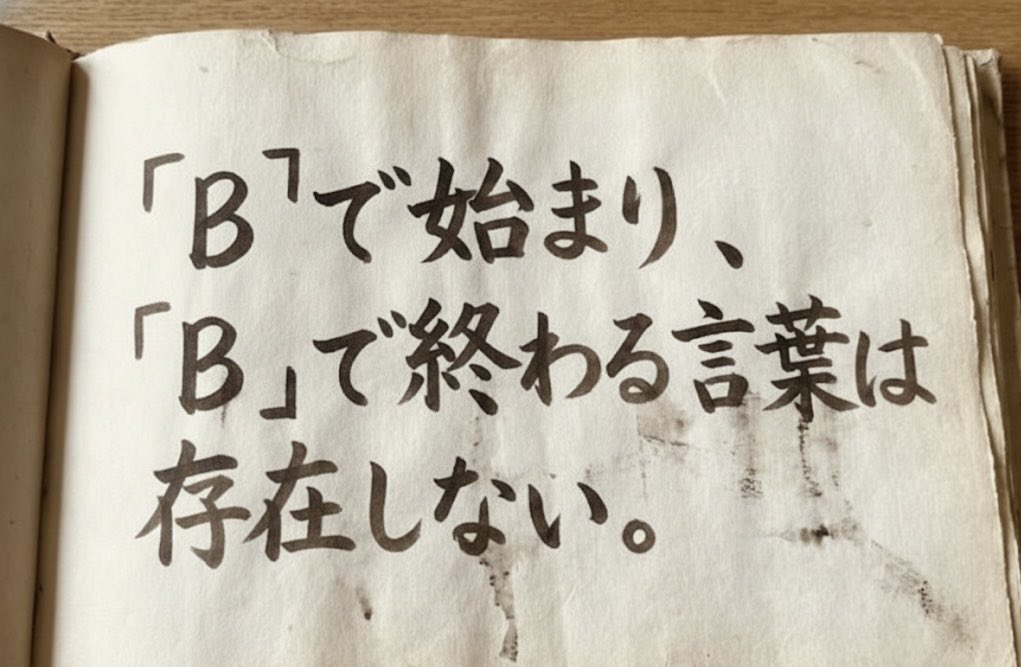 「B」で始まり、
「B」で終わる言葉は
存在しない。